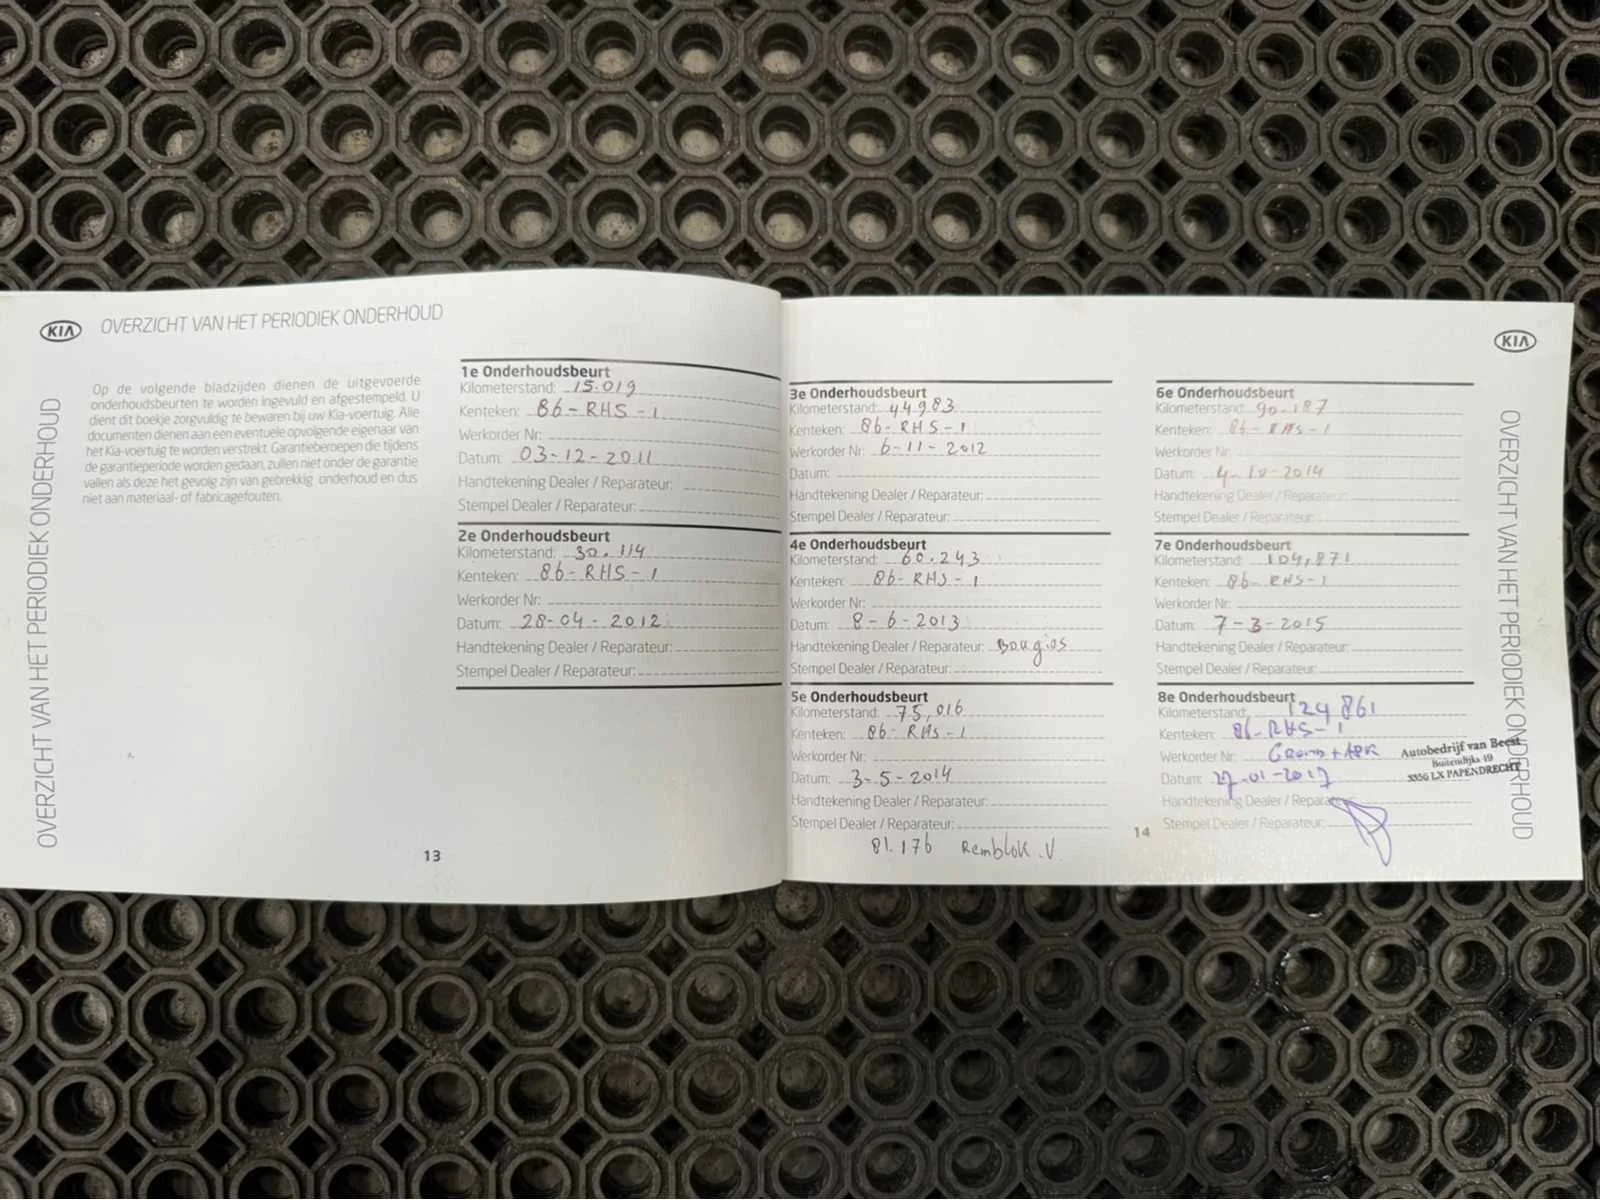 KIA
OVERZICHT VAN HET PERIODIEK ONDERHOUD
OVERZICHT VAN HET PERIODIEK ONDERHOUD
Op de volgende bladzijden dienen de uitgevoerde
onderhoudsbeurten te worden ingevuld en afgestempeld. U
dient dit boekje zorgvuldig te bewaren bij uw Kia-voertuig. Alle
documenten dienen aan een eventuele opvolgende eigenaar van
het Kia-voertuig te worden verstrekt. Garantieberoepen die tijdens
de garantieperiode worden gedaan, zullen niet onder de garantie
vallen als deze het gevolg zijn van gebrekkig onderhoud en dus
niet aan materiaal- of fabricagefouten.
1e Onderhoudsbeurt
Kilometerstand: 15.019
Kenteken: 86-RHS-1
Werkorder Nr:
Datum: 03-12-2011
Handtekening Dealer / Reparateur:
Stempel Dealer / Reparateur:
2e Onderhoudsbeurt
Kilometerstand: 30.114
Kenteken: 86-RHS-1
Werkorder Nr:
Datum: 28-04-2012
Handtekening Dealer / Reparateur:
Stempel Dealer / Reparateur:
13
3e Onderhoudsbeurt
Kilometerstand: 44983
Kenteken: 86-RHS-1
Werkorder Nr: 6-11-2012
Datum:
Handtekening Dealer / Reparateur:
Stempel Dealer / Reparateur:
4e Onderhoudsbeurt
Kilometerstand: 60.243
Kenteken: 86-RHS-1
Werkorder Nr:
Datum: 8-6-2013
Handtekening Dealer / Reparateur: Bougies
Stempel Dealer / Reparateur:
5e Onderhoudsbeurt
Kilometerstand: 75,016
Kenteken: 86-RHS-1
Werkorder Nr:
Datum: 3-5-2014
Handtekening Dealer / Reparateur:
Stempel Dealer / Reparateur:
81.176 Remblok.V.
KIA
6e Onderhoudsbeurt
Kilometerstand: 90.187
Kenteken: 86-RHS-1
Werkorder Nr:
Datum: 4-10-2014
Handtekening Dealer / Reparateur:
Stempel Dealer / Reparateur:
7e Onderhoudsbeurt
Kilometerstand: 104,871
Kenteken: 86-RHS-1
Werkorder Nr:
Datum: 7-3-2015
Handtekening Dealer / Reparateur:
Stempel Dealer / Reparateur:
8e Onderhoudsbeurt
Kilometerstand: 124861
Kenteken: 86-RHS-1
Werkorder Nr: + APK
Datum: 27-01-2017
Handtekening Dealer / Reparateur:
Stempel Dealer / Reparateur:
Autobedrijf van Beest
Buitendijks 19
3356 LX PAPENDRECHT
14
OVERZICHT VAN HET PERIODIEK ONDERHOUD